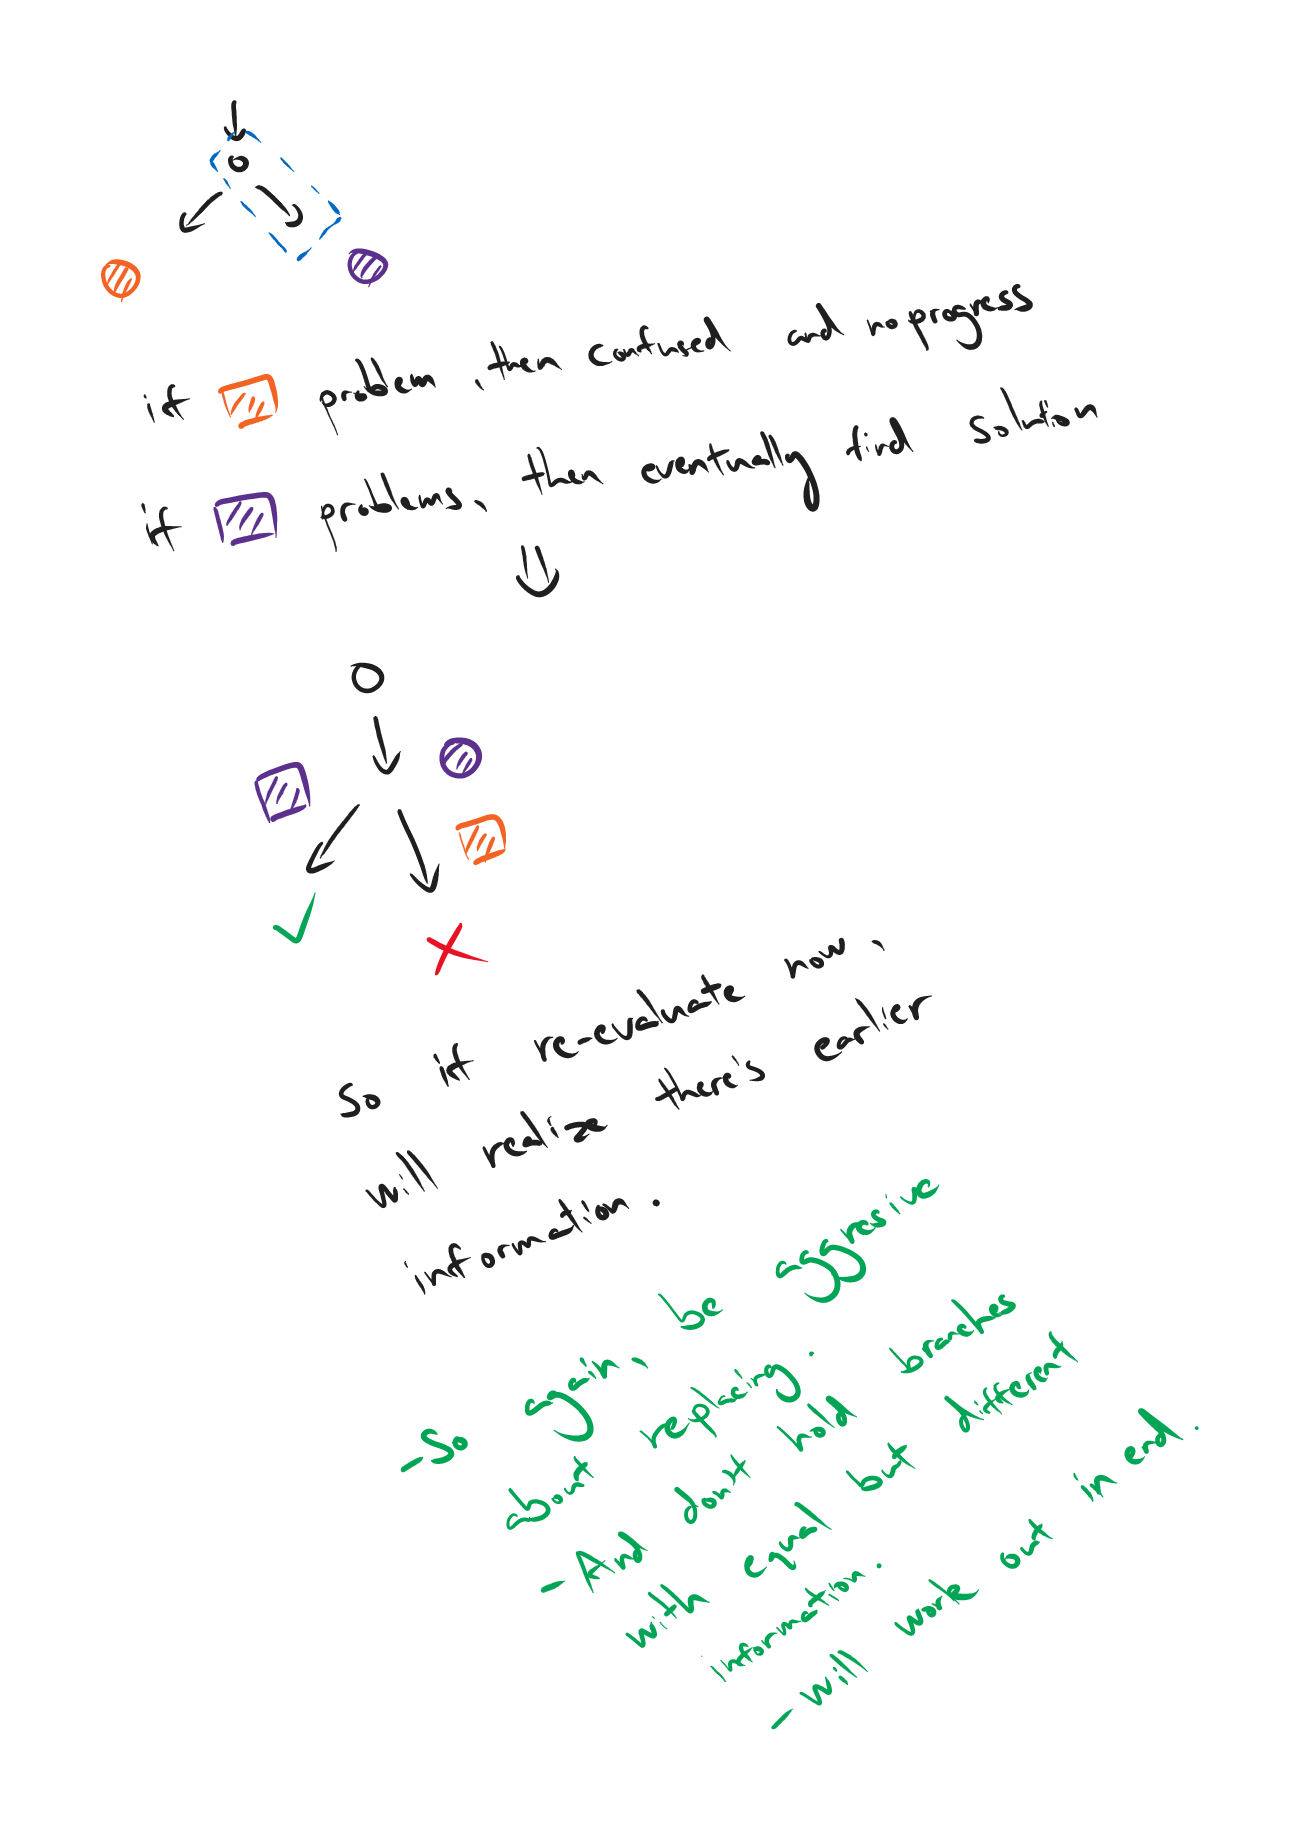 if problem, then confused and no progress
if problems, then eventually find solution
So if re-evaluate now,
will realize there's earlier
information.
- So again, be aggresive
about replacing.
- And don't hold branches
with equal but different
information.
- will work out in end.